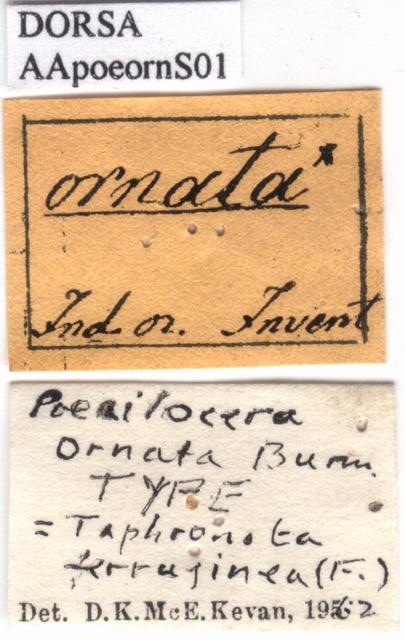 DORSA
AApoeornS01
ornata*
Ind. or. Invent
Poecilocera
Ornata Burm.
TYPE
= Taphronota
ferruginea (F.)
Det. D.K.McE.Kevan, 1952